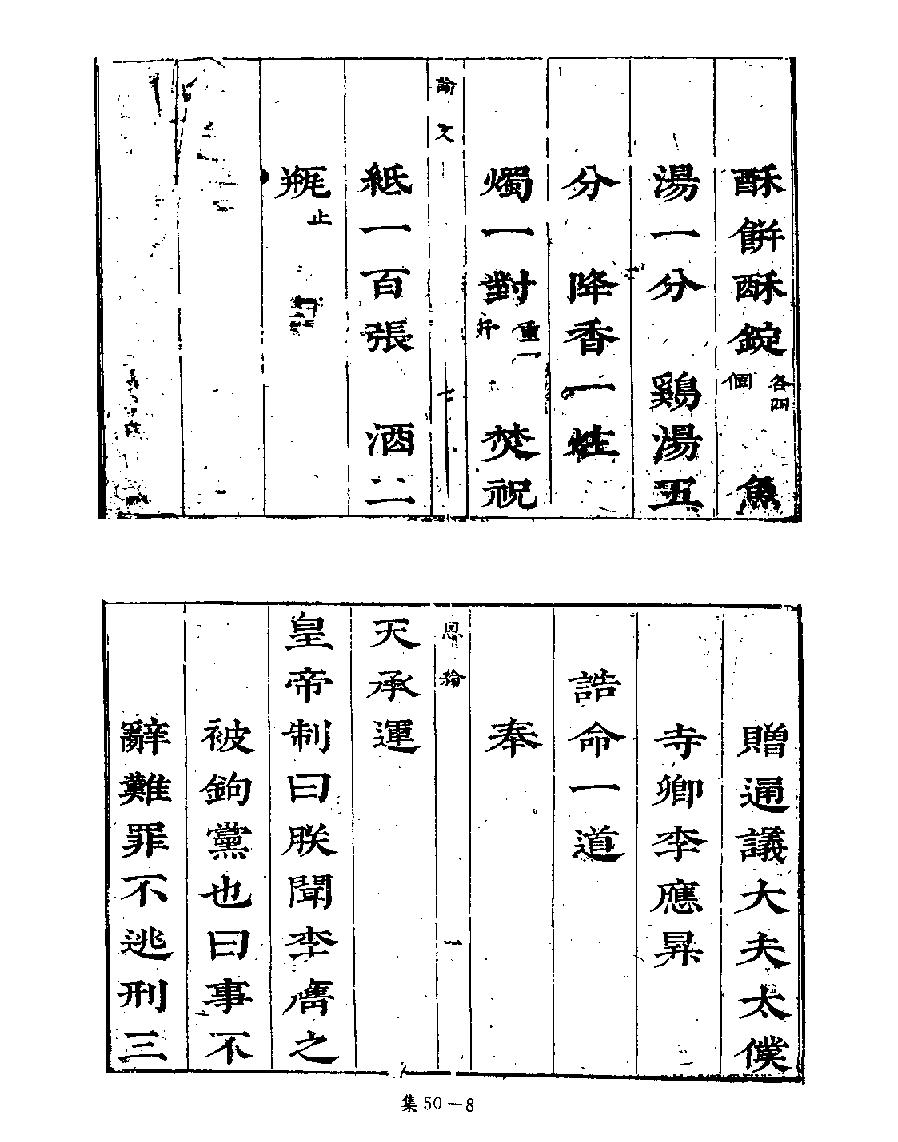 酥餅酥錠各四個 魚
湯一分 鷄湯五
分 降香一炷
燭一對重一斤 焚祝
諭文
紙一百張 酒二
瓶止
贈通議大夫太僕
寺卿李應昇
誥命一道
奉
恩綸 一
天承運
皇帝制曰朕聞李膺之
被鉤黨也曰事不
辭難罪不逃刑三
集50-8